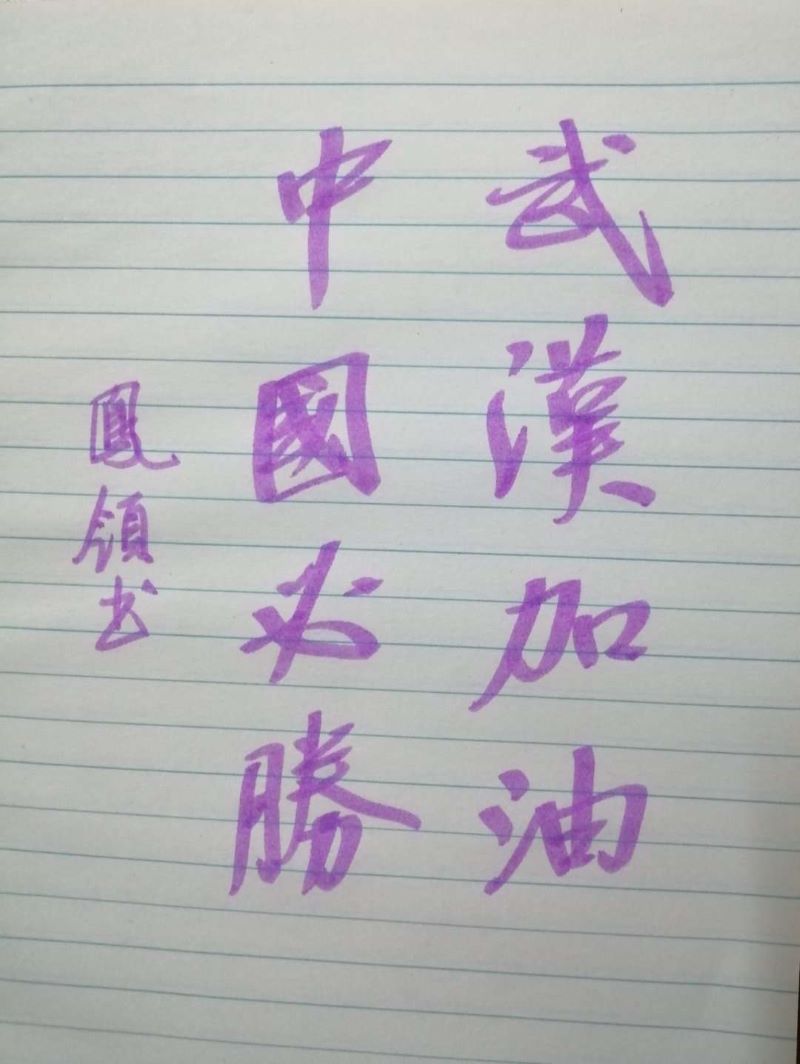 武漢加油
中國必勝
鳳領书